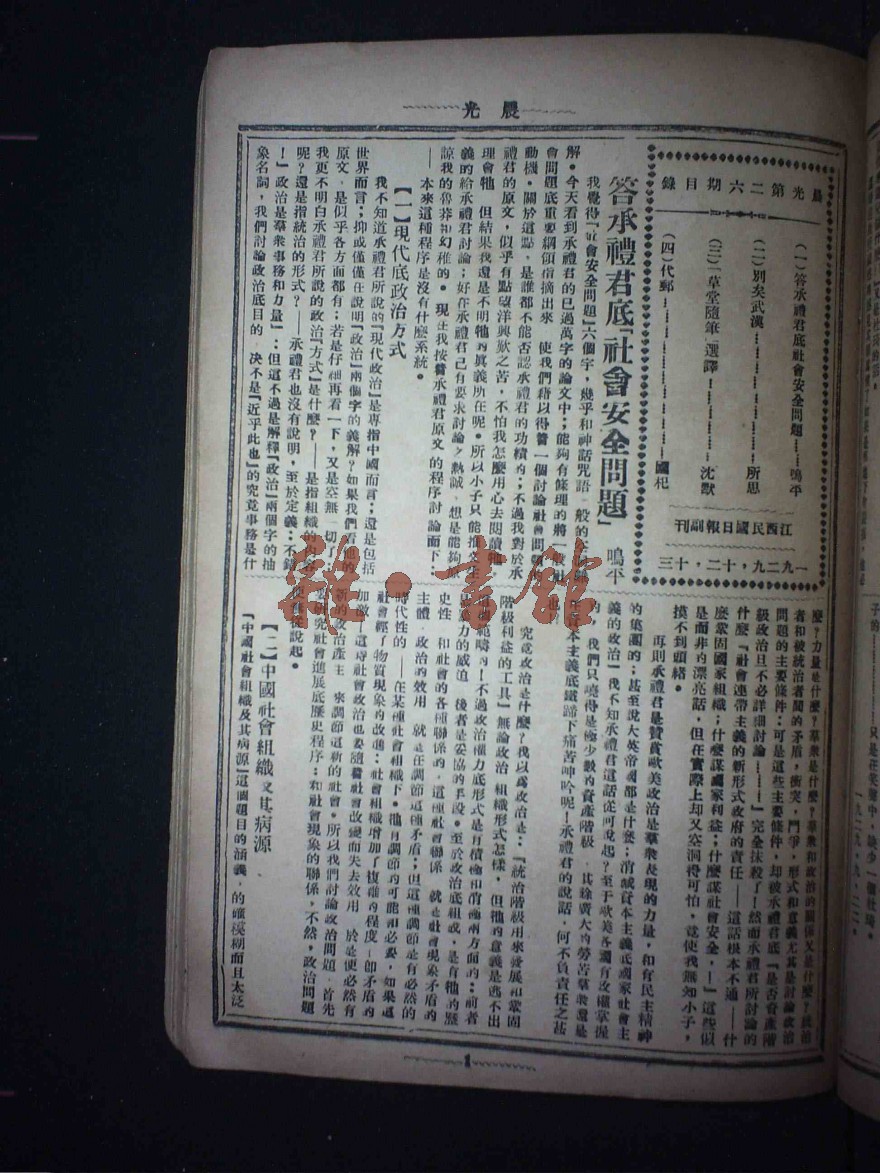 晨光
晨光第二六期目錄
(一)答承禮君底社會安全問題………鳴平
(二)別矣武漢………所思
(三)「草堂隨筆」選譯………沈默
(四)代郵………國杞
江西民國日報副刊
一九二九,十二,十三
答承禮君底『社會安全問題』 鳴平
我覺得『社會安全問題』六個字,幾乎和神話咒語一般的
解。今天看到承禮君的已過萬字的論文中;能夠有條理的將一般社
會問題底重要綱領指摘出來 使我們藉以得着一個討論社會問題的
動機。關於這點,是誰都不能否認承禮君的功績的;不過我對於承
禮君的原文,似乎有點望洋興歎之苦,不怕我怎麼用心去閱讀牠
理會牠 但結果我還是不明牠的眞義所在呢。所以小子只能
義的給承禮君討論;好在承禮君已有要求討論之熱誠,想是能夠原
諒我的魯莽和幼稚的。現在我按着承禮君原文的程序討論而下:
——本來這種程序是沒有什麼系統。
【一】現代底政治方式
我不知道承禮君所說的『現代政治』是專指中國而言;還是包括
世界而言;抑或僅僅在說明『政治』兩個字的義解?如果我們看他的
原文,是似乎各方面都有;若是仔細再看一下,又是空無一切了;
我更不明白承禮君所說的政治『方式』是什麼?——是指組織的內容
呢?還是指統治的形式?——承禮君也沒有說明,至於定義:不錯
!』政治是羣衆事務和力量』:但這不過是解釋『政治』兩個字的抽
象名詞,我們討論政治底目的,決不是『近乎此也』的究竟事務是什
麼?力量是什麼?羣衆是什麼?羣衆和政治的關係又是什麼?統治
者和被統治者間的矛盾,衝突,鬥爭,形式和意義尤其是討論政治
問題的主要條件:可是這些主要條件,却被承禮君底『是否資產階
級政治且不必詳細討論………』完全抹殺了!然而承禮君所討論的
什麼『社會連帶主義的新形式政府的責任——這話根本不通——什
麼鞏固國家組織;什麼謀國家利益;什麼謀社會安全,—』這些似
是而非的漂亮話,但在實際上却又空洞得可怕,竟使我無知小子,
摸不到頭緒。
再則承禮君是贊賞歐美政治是羣衆表現的力量,和有民主精神
的集團的;甚至說大英帝國都是什麼;消滅資本主義底國家社會主
義的政治一我不知承禮君這話從何說起?至于歐美各國有政權掌握
的 我們只曉得是極少數的資產階級 其餘廣大的勞苦羣衆還是
在資本主義底鐵蹄下痛苦呻吟呢!承禮君的說話,何不負責任之甚
也
究竟政治是什麼?我以爲政治是:『統治階級用來發展和鞏固
階級利益的工具』無論政治 組織形式怎樣 但牠的意義是逃不出
範疇的!不過政治權力底形式是有積極和消極兩方面的:前者
力的威迫 後者是妥協的手段。至於政治底組成,是有牠的歷
史性 和社會的各種聯係的,這種社會聯係 就是社會現象矛盾的
主體,政治的效用 就是在調節這種矛盾;但這種調節是有必然的
時代性的——在某種社會組織下。牠有調節的可能和必要,如果這
社會經了物質現象的改進:社會組織增加了複雜的程度 卽矛盾的
加激 這時社會政治也要隨着社會改變而失去效用 於是便必然有
新的政治產生 來調節這新的社會。所以我們討論政治問題 首先
要研究社會進展底歷史程序:和社會現象的聯係,不然,政治問題
便無從說起。
【二】中國社會組織及其病源
『中國社會組織及其病源』這個題目的涵義,的確模糊而且太泛
1
雜·書館